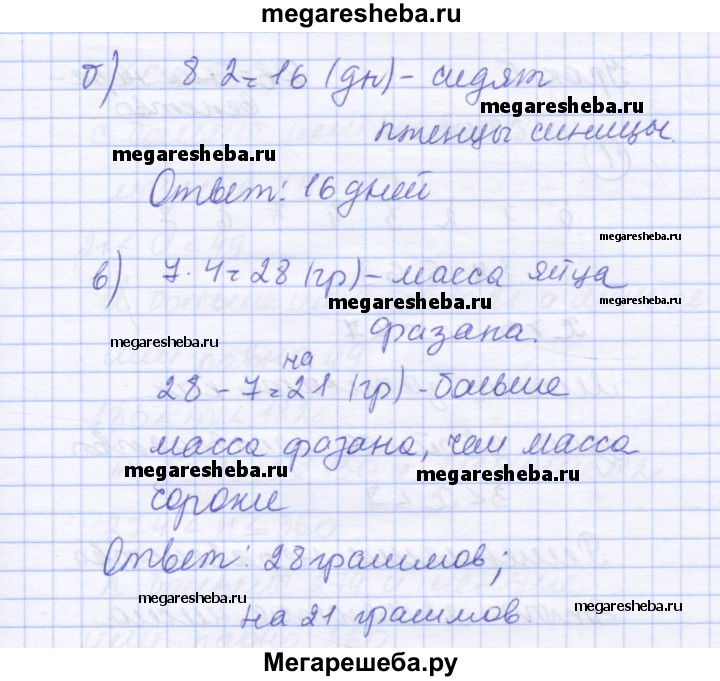 megaresheba.ru
б) 8·2=16 (дн) - сидят
megaresheba.ru
птенцы синицы.
megaresheba.ru
Ответ: 16 дней
megaresheba.ru
в) 7·4=28 (гр) - масса яйца
megaresheba.ru
megaresheba.ru
фазана.
megaresheba.ru
на
28-7=21 (гр) - больше
масса фазана, чем масса
megaresheba.ru
megaresheba.ru
сороки
Ответ: 28 граммов;
megaresheba.ru
megaresheba.ru
на 21 граммов.
Мегарешеба.ру